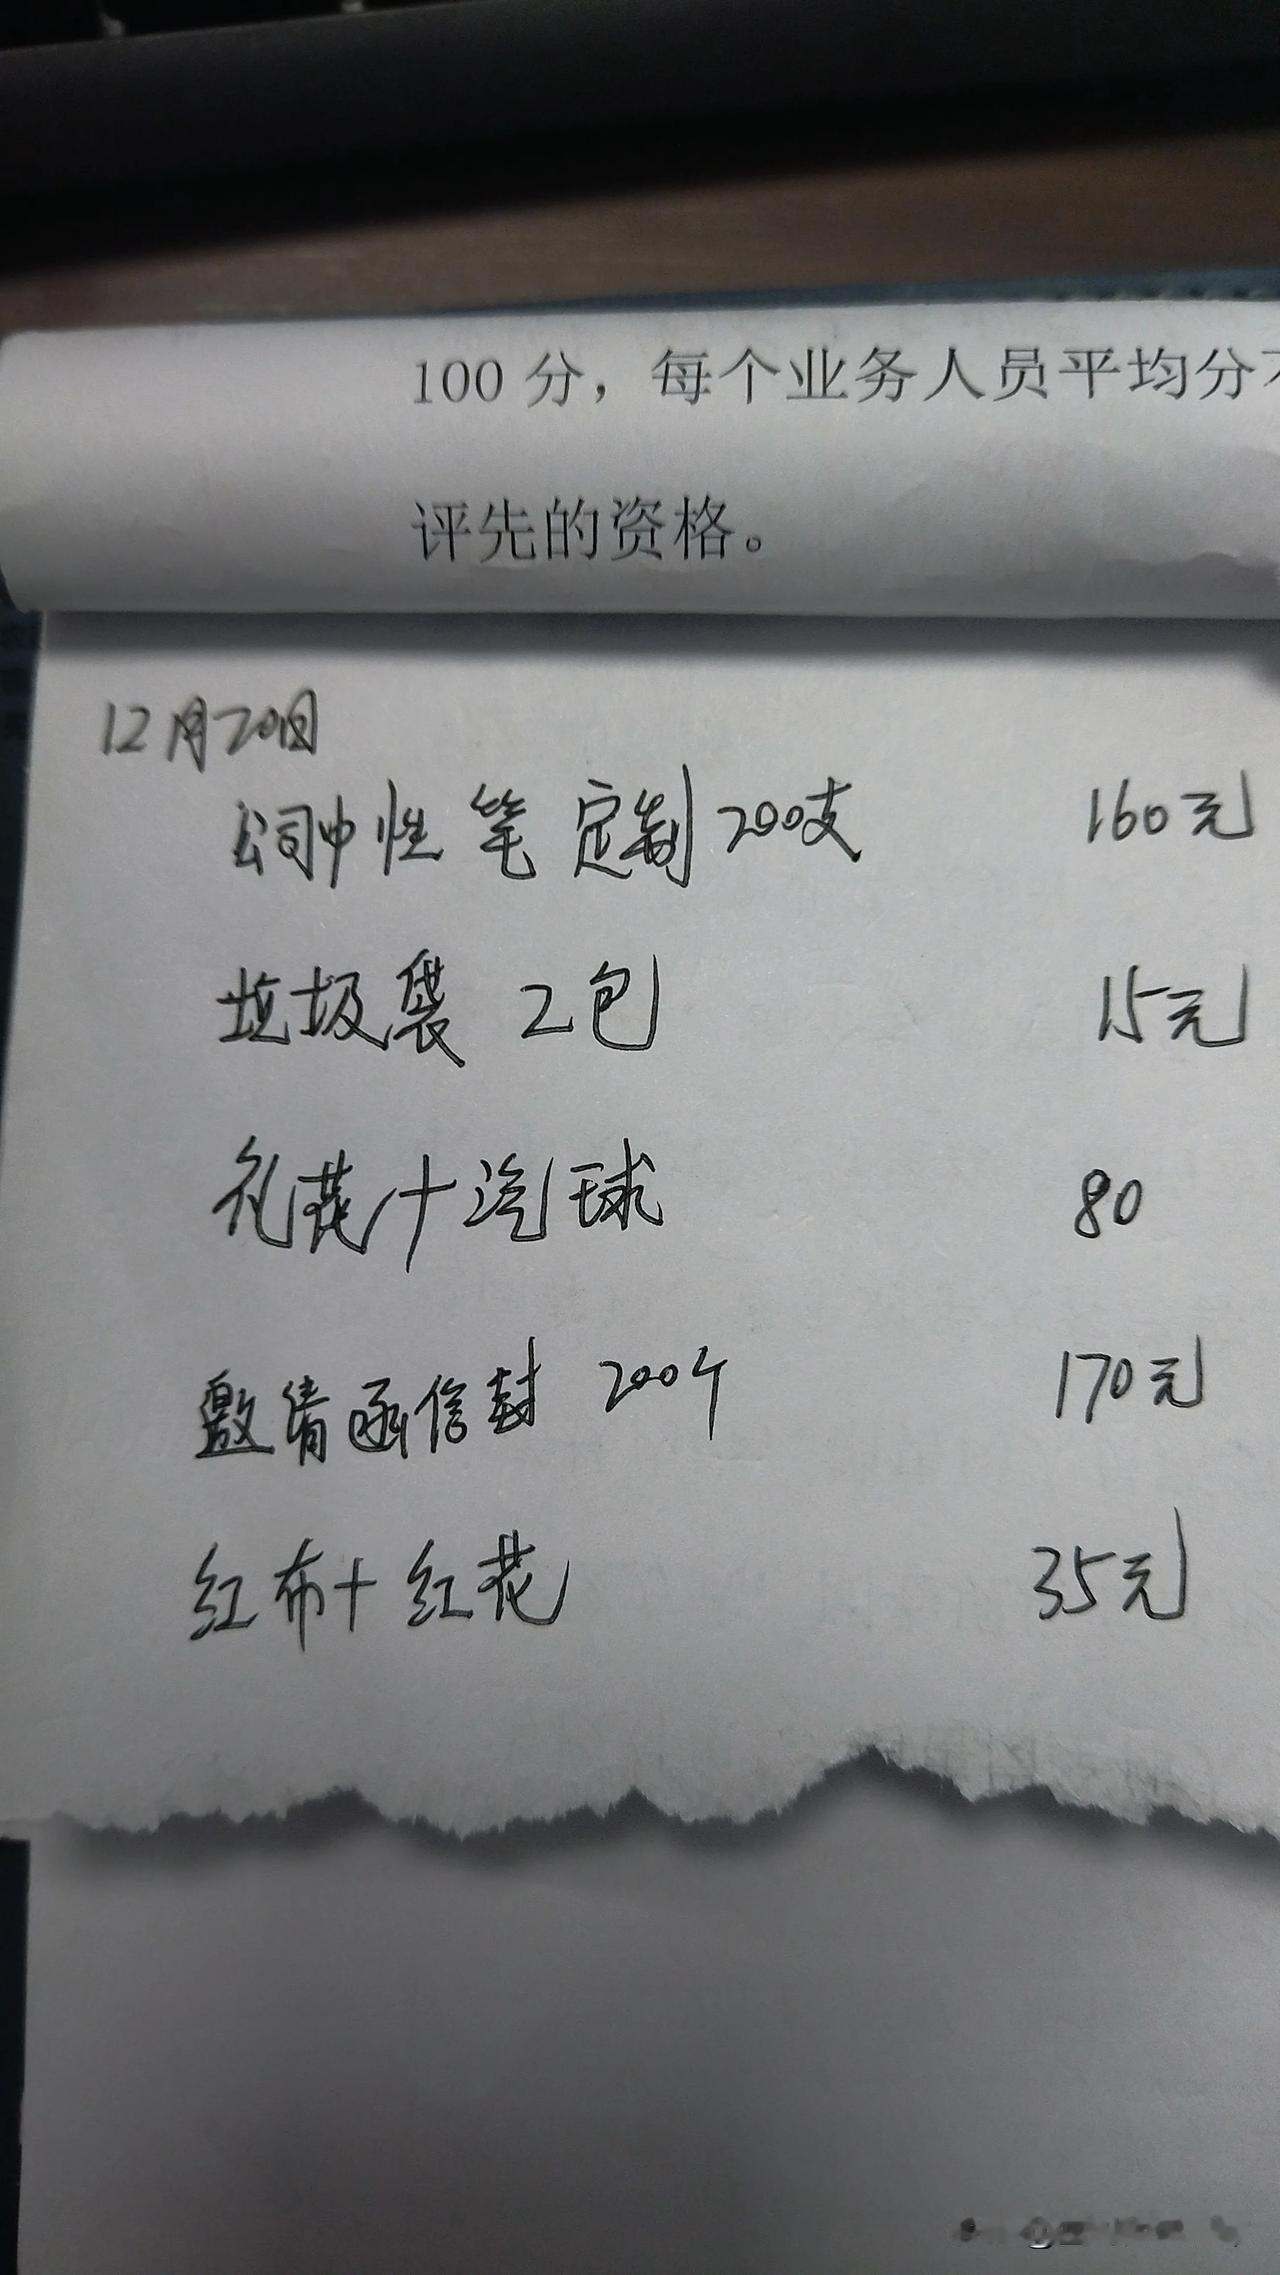 100分，每个业务人员平均分不
评先的资格。
12月20日
公司中性笔定制200支 160元
垃圾袋 2包 15元
礼花+汽球 80
邀请函信封 200个 170元
红布+红花 35元